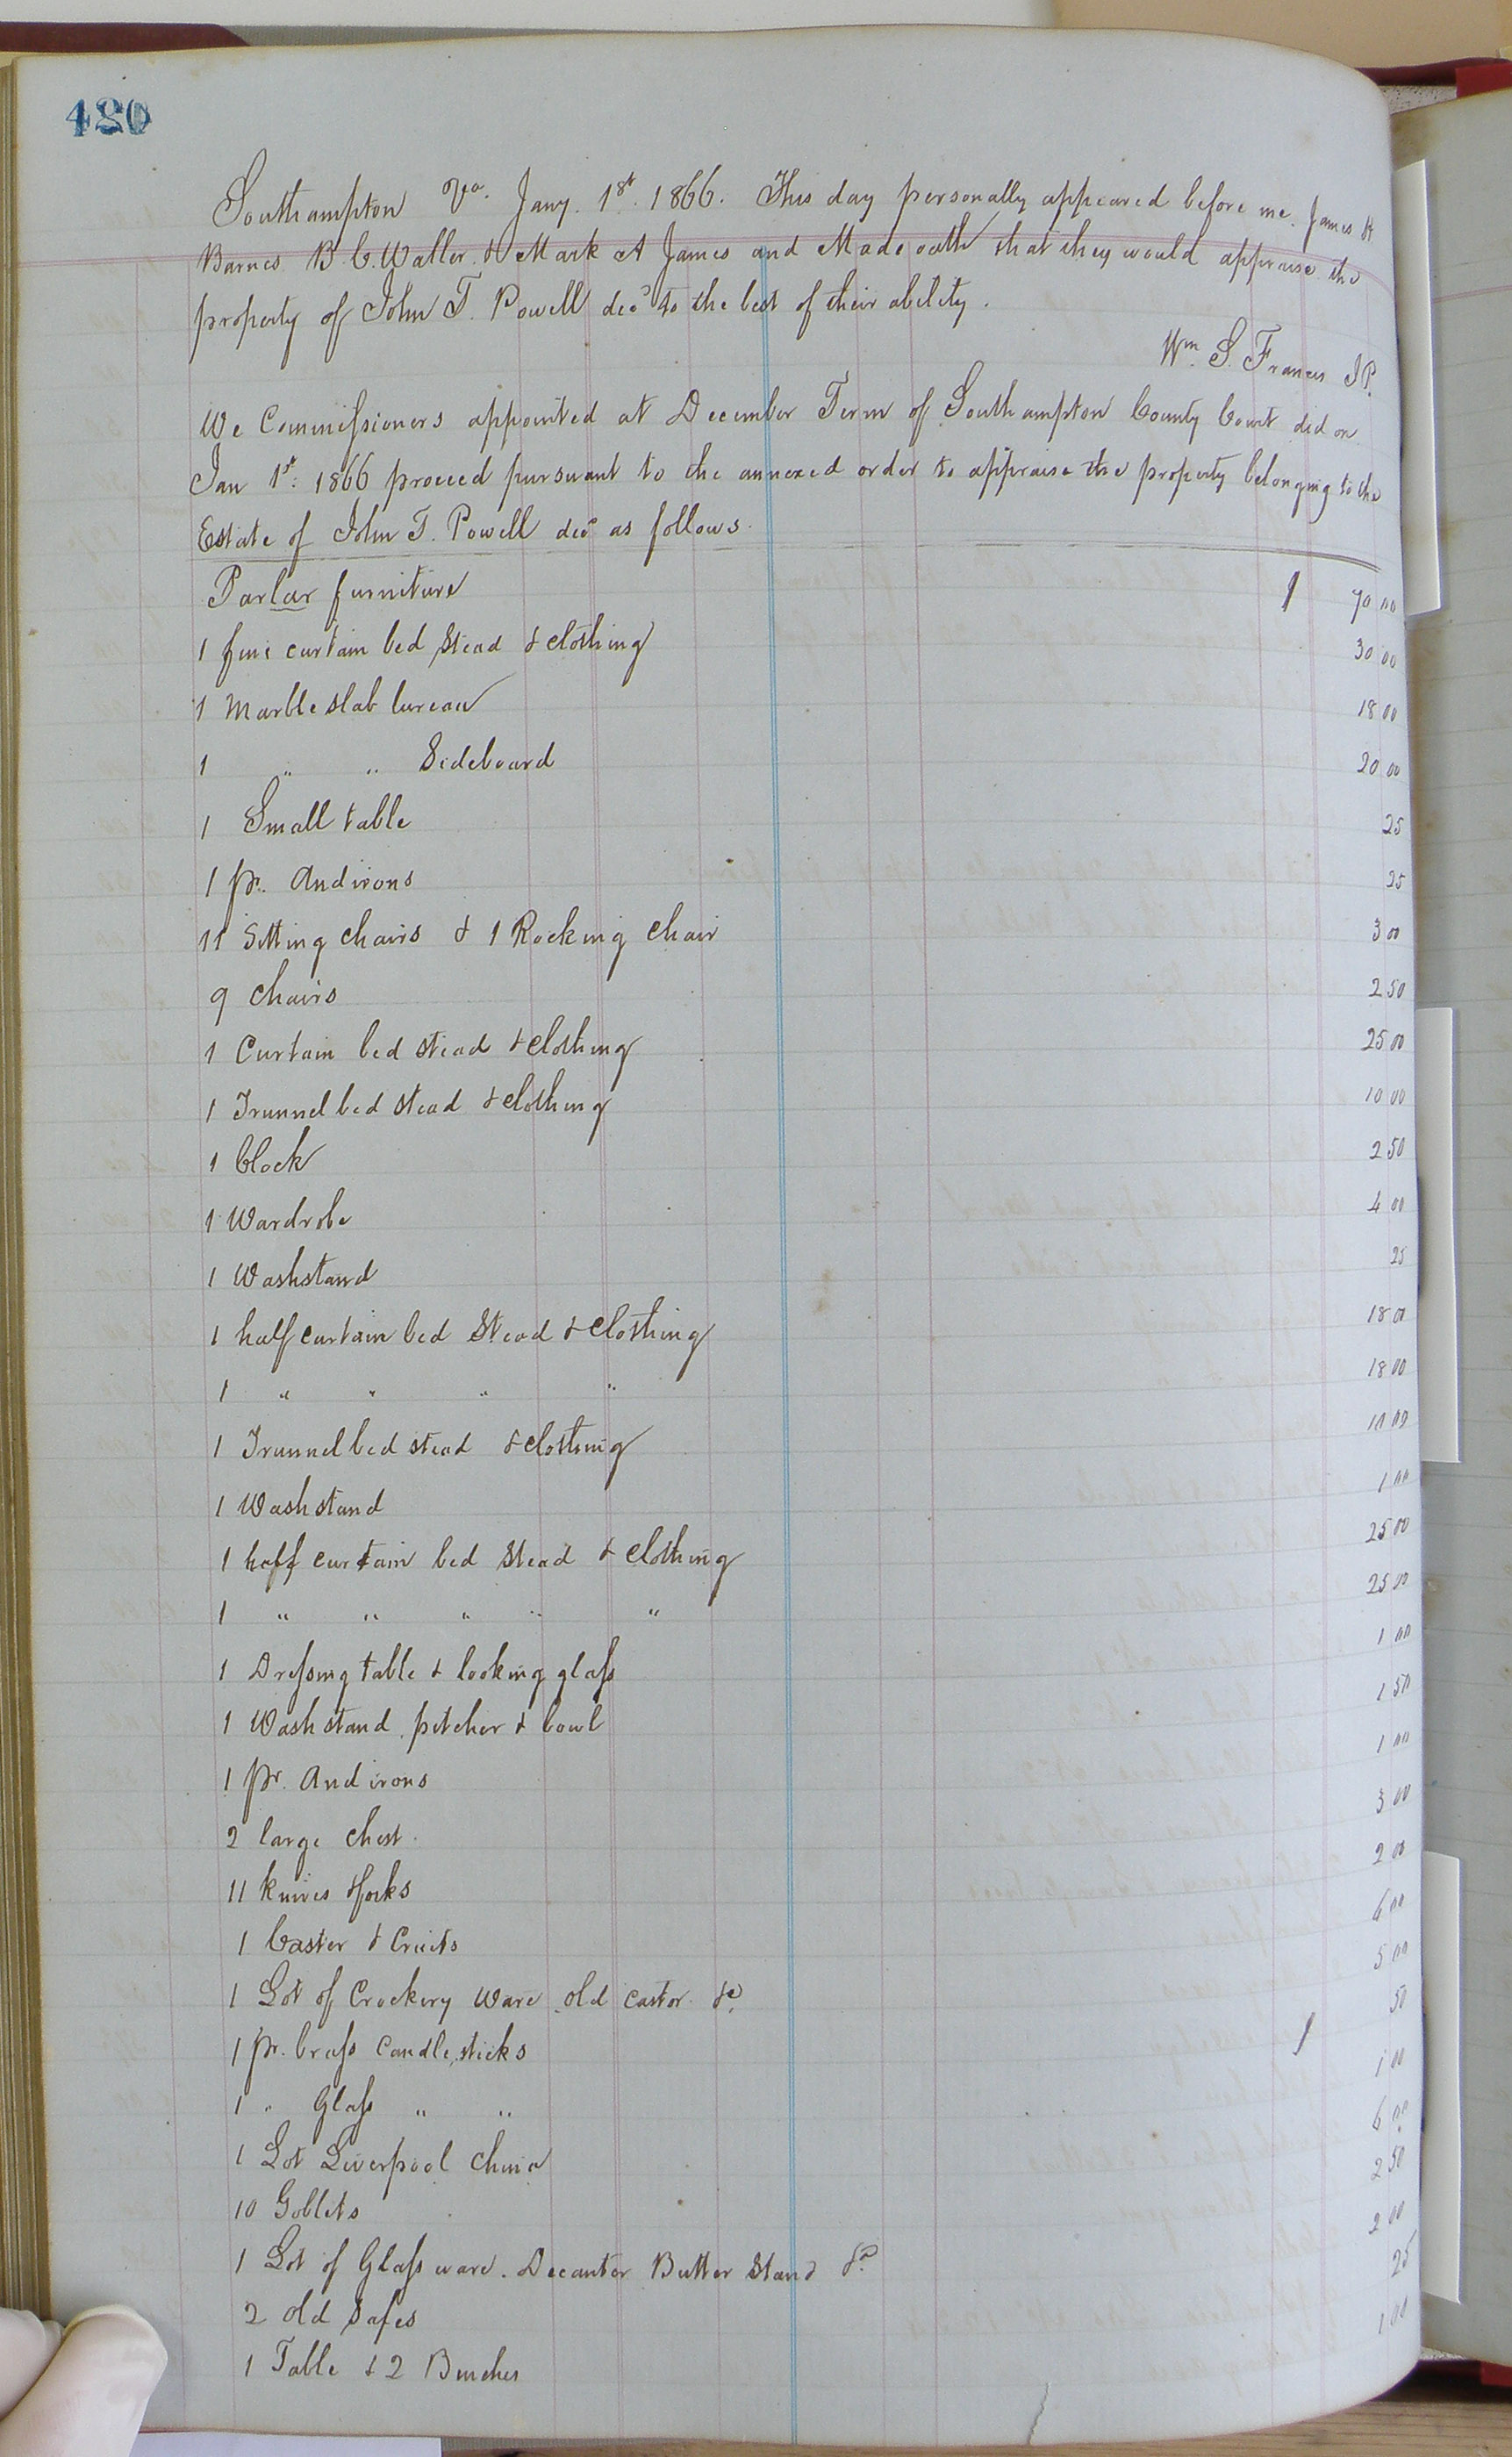 480
Southampton Va. Jany. 1st. 1866. This day personally appeared before me. James H
Barnes B. C. Waller & Mark A James and Made oath that they would appraise the
property of John T. Powell decd to the best of their ability.
Wm. S. Francis J P.
We Commissioners appointed at December Term of Southampton County Court did on
Jan 1st: 1866 proceed pursuant to the annexed order to appraise the property belonging to the
Estate of John T. Powell decd as follows.
Parlar furniture 70 00
1 fine curtain bed stead & clothing 30 00
1 Marble slab bureau 18 00
1 " " Sideboard 20 00
1 Small table 25
1 pr. Andirons 25
11 Sitting chairs & 1 Rocking Chair 3 00
9 Chairs 2 50
1 Curtain bed stead & clothing 25 00
1 Trunnel bed stead & clothing 10 00
1 Clock 2 50
1 Wardrobe 4 00
1 Washstand 25
1 half curtain bed Stead & Clothing 18 00
1 " " " " 18 00
1 Trunnel bed stead & clothing 10 00
1 Washstand 1 00
1 half curtain bed Stead & Clothing 25 00
1 " " " " " 25 00
1 Dressing table & looking glass 1 00
1 Washstand, pitcher & bowl 1 50
1 pr. Andirons 1 00
2 large chest. 3 00
11 knives & forks 2 00
1 Caster & Cruits 6 00
1 Lot of Crockery Ware old castor &c. 5 00
1 pr. brass Candle,sticks 50
1 " Glass " " 1 00
1 Lot Liverpool China 6 00
10 Goblets 2 50
1 Lot of Glass ware. Decanter Butter Stand &c. 2 00
2 old safes 25
1 Table & 2 Benches 1 00